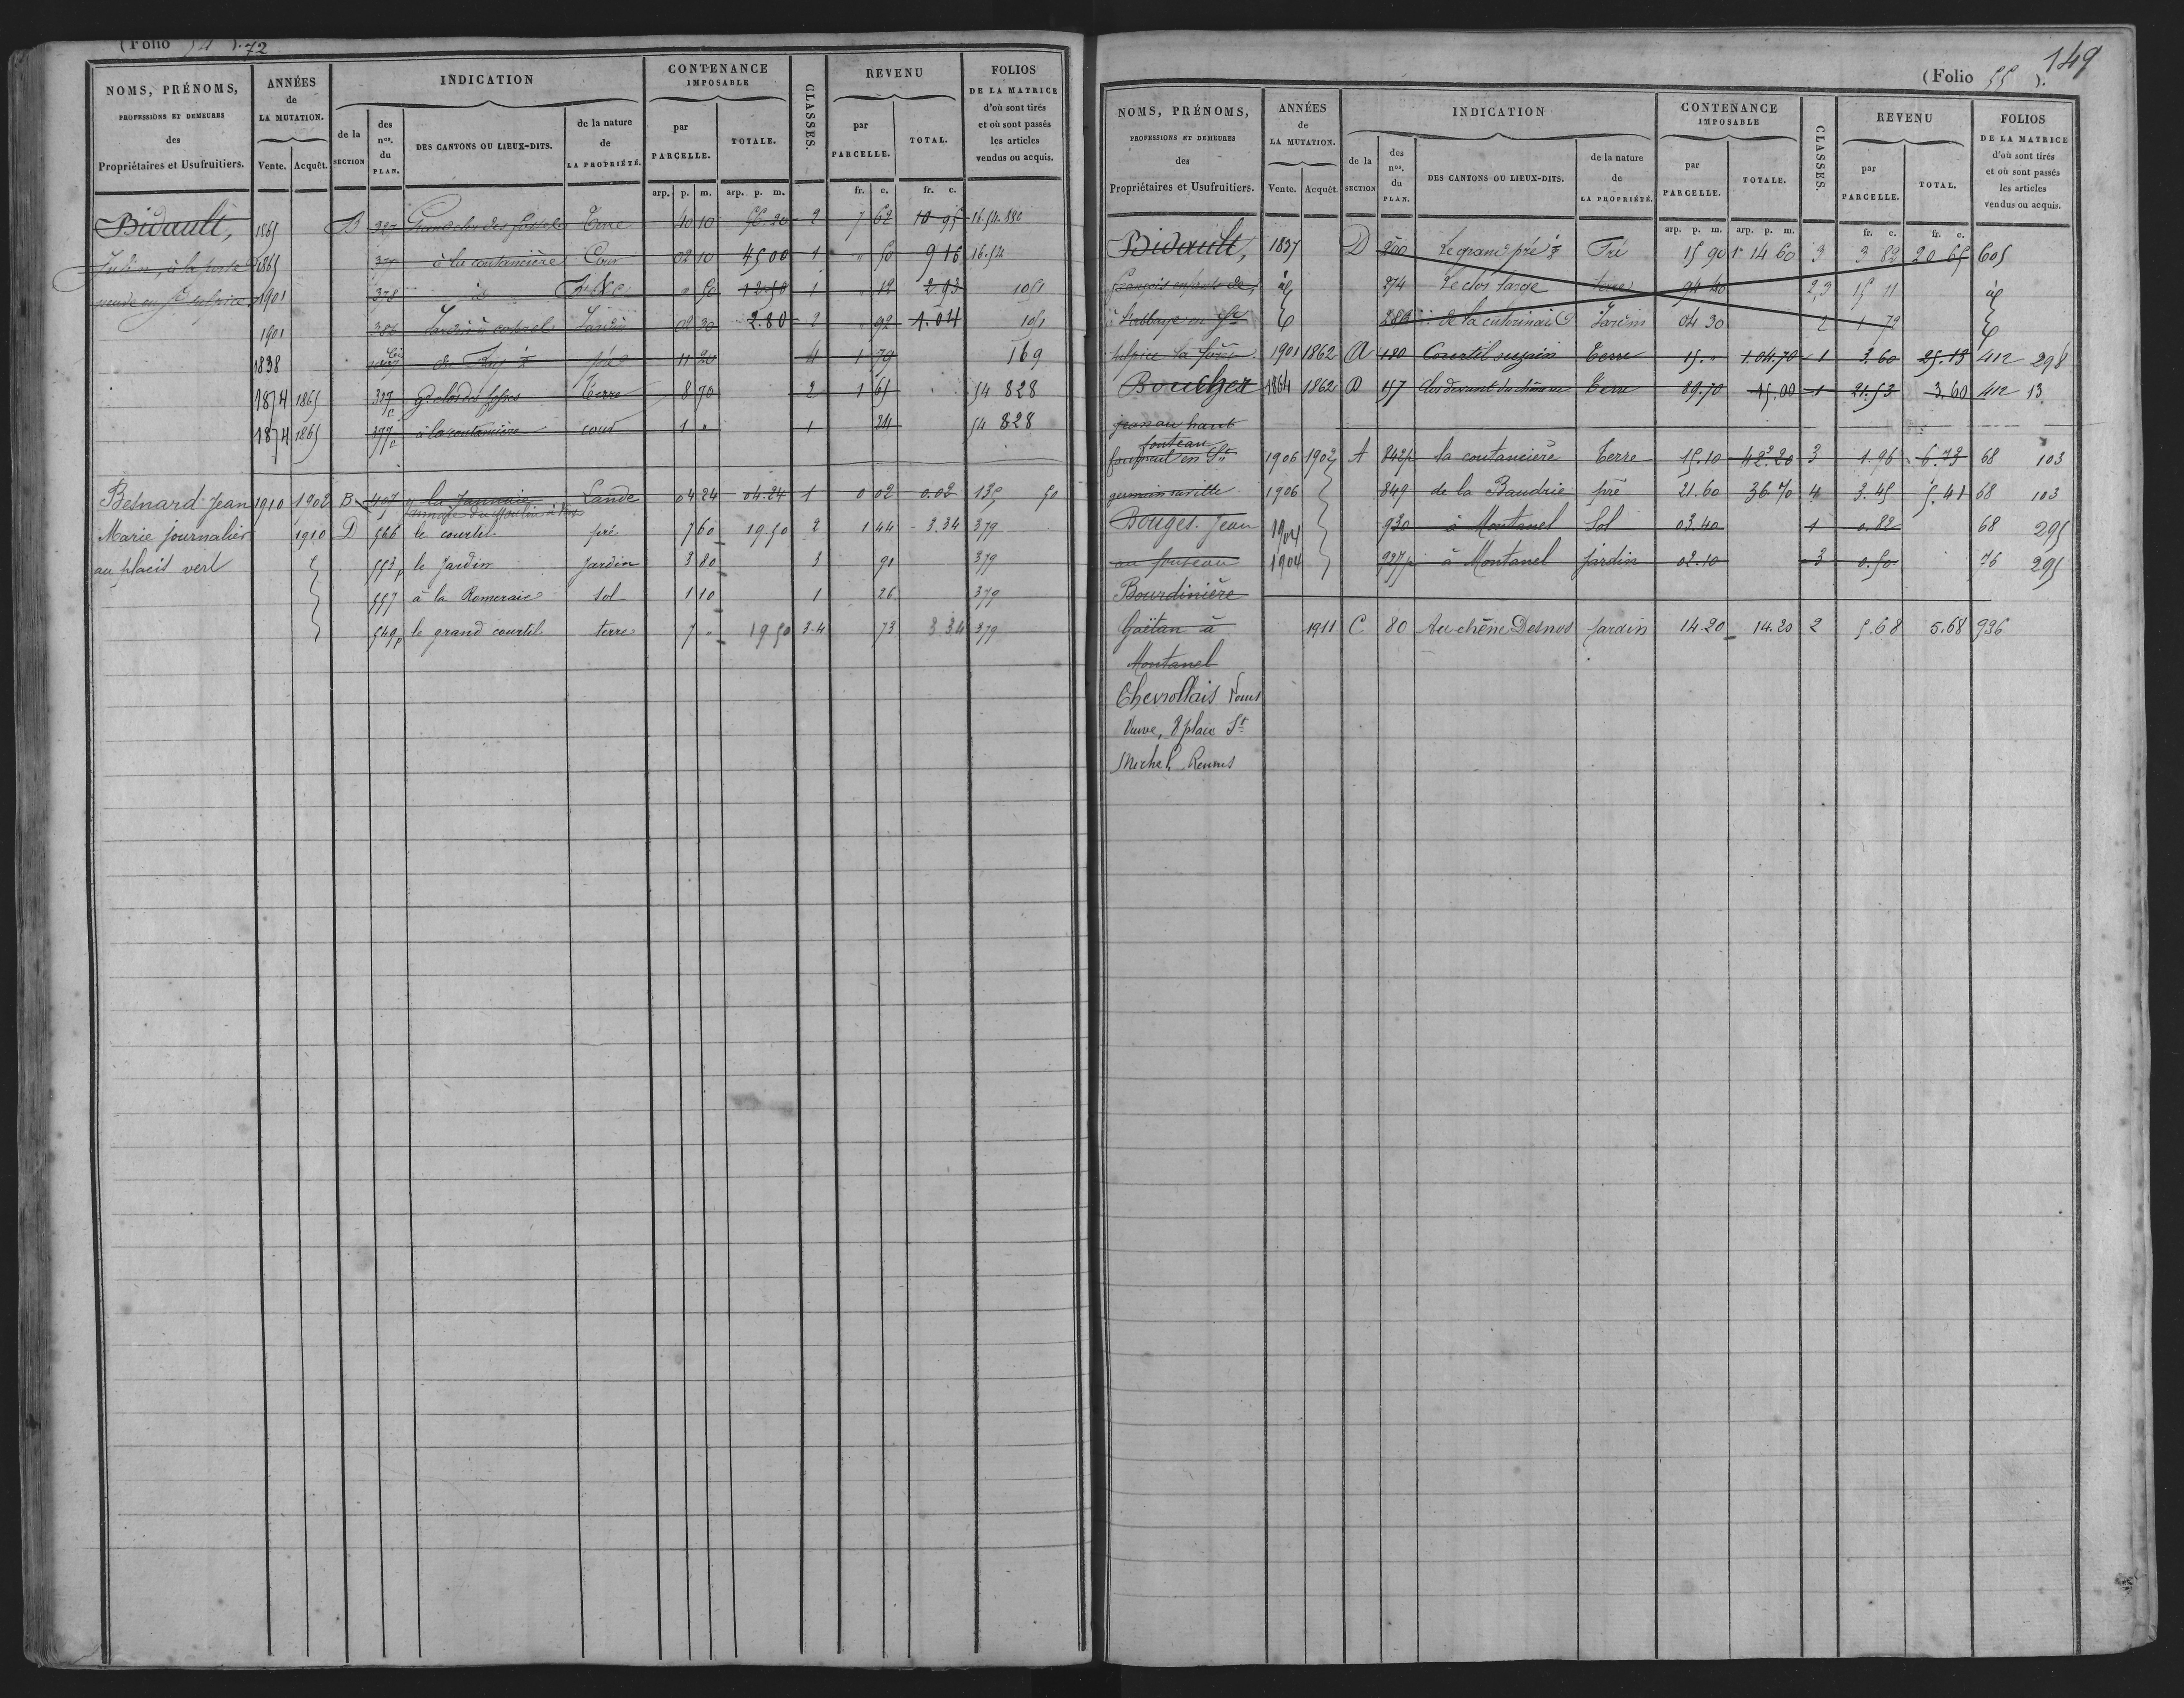 (Folio 54 ). 72
NOMS, PRÉNOMS, PROFESSIONS ET DEMEURES des Propriétaires et Usufruitiers.
ANNÉES de LA MUTATION. Vente. Acquêt.
INDICATION
de la SECTION
des nos. du PLAN.
DES CANTONS OU LIEUX-DITS.
de la nature de LA PROPRIÉTÉ.
CONTENANCE IMPOSABLE
par PARCELLE. TOTALE.
CLASSES.
REVENU
par PARCELLE. TOTAL.
FOLIOS DE LA MATRICE d'où sont tirés et où sont passés les articles vendus ou acquis.
arp. p. m. arp. p. m. fr. c. fr. c.
Bidault, 1865 B 327 Grand clos des Terre 40 10 56.20 2 7 62 10 95 16.54.
Julien, à la porte 1865 377 à la coutancière Cour 02 10 45 00 1 " 50 9 16 16.54
1901 378 id " 50 12 50 1 " 12 2 93 1051
1901 386 Jardin Jardin 02 30 2.80 2 " 92 1.04 1051
1838 pré 11 20 4 1 79 169
1874 1865 327 Gd clos des Terre 8 70 2 1 65 54 828
1874 1865 377 à la coutancière cour 1 " 1 24 54 828
Besnard Jean 1910 1902 B 407 la Lande 04 24 04.24 1 0 02 0.02 135 50
Marie journalier 1910 D 566 le courtil pré 7 60 19.50 2 1 44 3.34 379
au placit vert 553p le Jardin Jardin 3 80 3 91 379
557 à la Romeraie sol 1 10 1 26 379
549p le grand courtil terre 7 " 19.50 3-4 73 3 34 379
149
(Folio 55 ).
NOMS, PRÉNOMS, PROFESSIONS ET DEMEURES des Propriétaires et Usufruitiers.
ANNÉES de LA MUTATION. Vente. Acquêt.
INDICATION
de la SECTION
des nos. du PLAN.
DES CANTONS OU LIEUX-DITS.
de la nature de LA PROPRIÉTÉ.
CONTENANCE IMPOSABLE
par PARCELLE. TOTALE.
CLASSES.
REVENU
par PARCELLE. TOTAL.
FOLIOS DE LA MATRICE d'où sont tirés et où sont passés les articles vendus ou acquis.
arp. p. m. arp. p. m. fr. c. fr. c.
Bidault, 1837 D 200 Le grand pré Pré 15 90 1 14 60 3 3 82 20 65 605
François enfants de, id 274 Le clos large terre 94 40 2,3 15 11 id
à l'abbaye en St 289 de la Jardin 04 30 2 1 72
sulpice la forêt 1901 1862 A 180 Courtil Terre 15. " 1.04.70 1 3.60 25.13 412 298
Boucher 1864 1862 D 157 Clos devant Terre 89.70 15.00 1 21.53 3.60 412 13
jean au haut
fouteau en St 1906 1902 A 842p la coutancière Terre 15.10 42.20 3 1.96 6.73 68 103
germain sur ille 1906 849 de la Baudrie pré 21.60 36.70 4 3.45 5.41 68 103
Bouget Jean 1904 930 à Montanel Sol 03.40 1 0.82 68 295
1904 927p à Montanel Jardin 02.10 3 0.50 76 295
Bourdinière
Gaëtan à 1911 C 80 Au chêne Desnos Jardin 14.20 14.20 2 5.68 5.68 936
Montanel
Chevrollais
Veuve, 8 place St
Michel Rennes